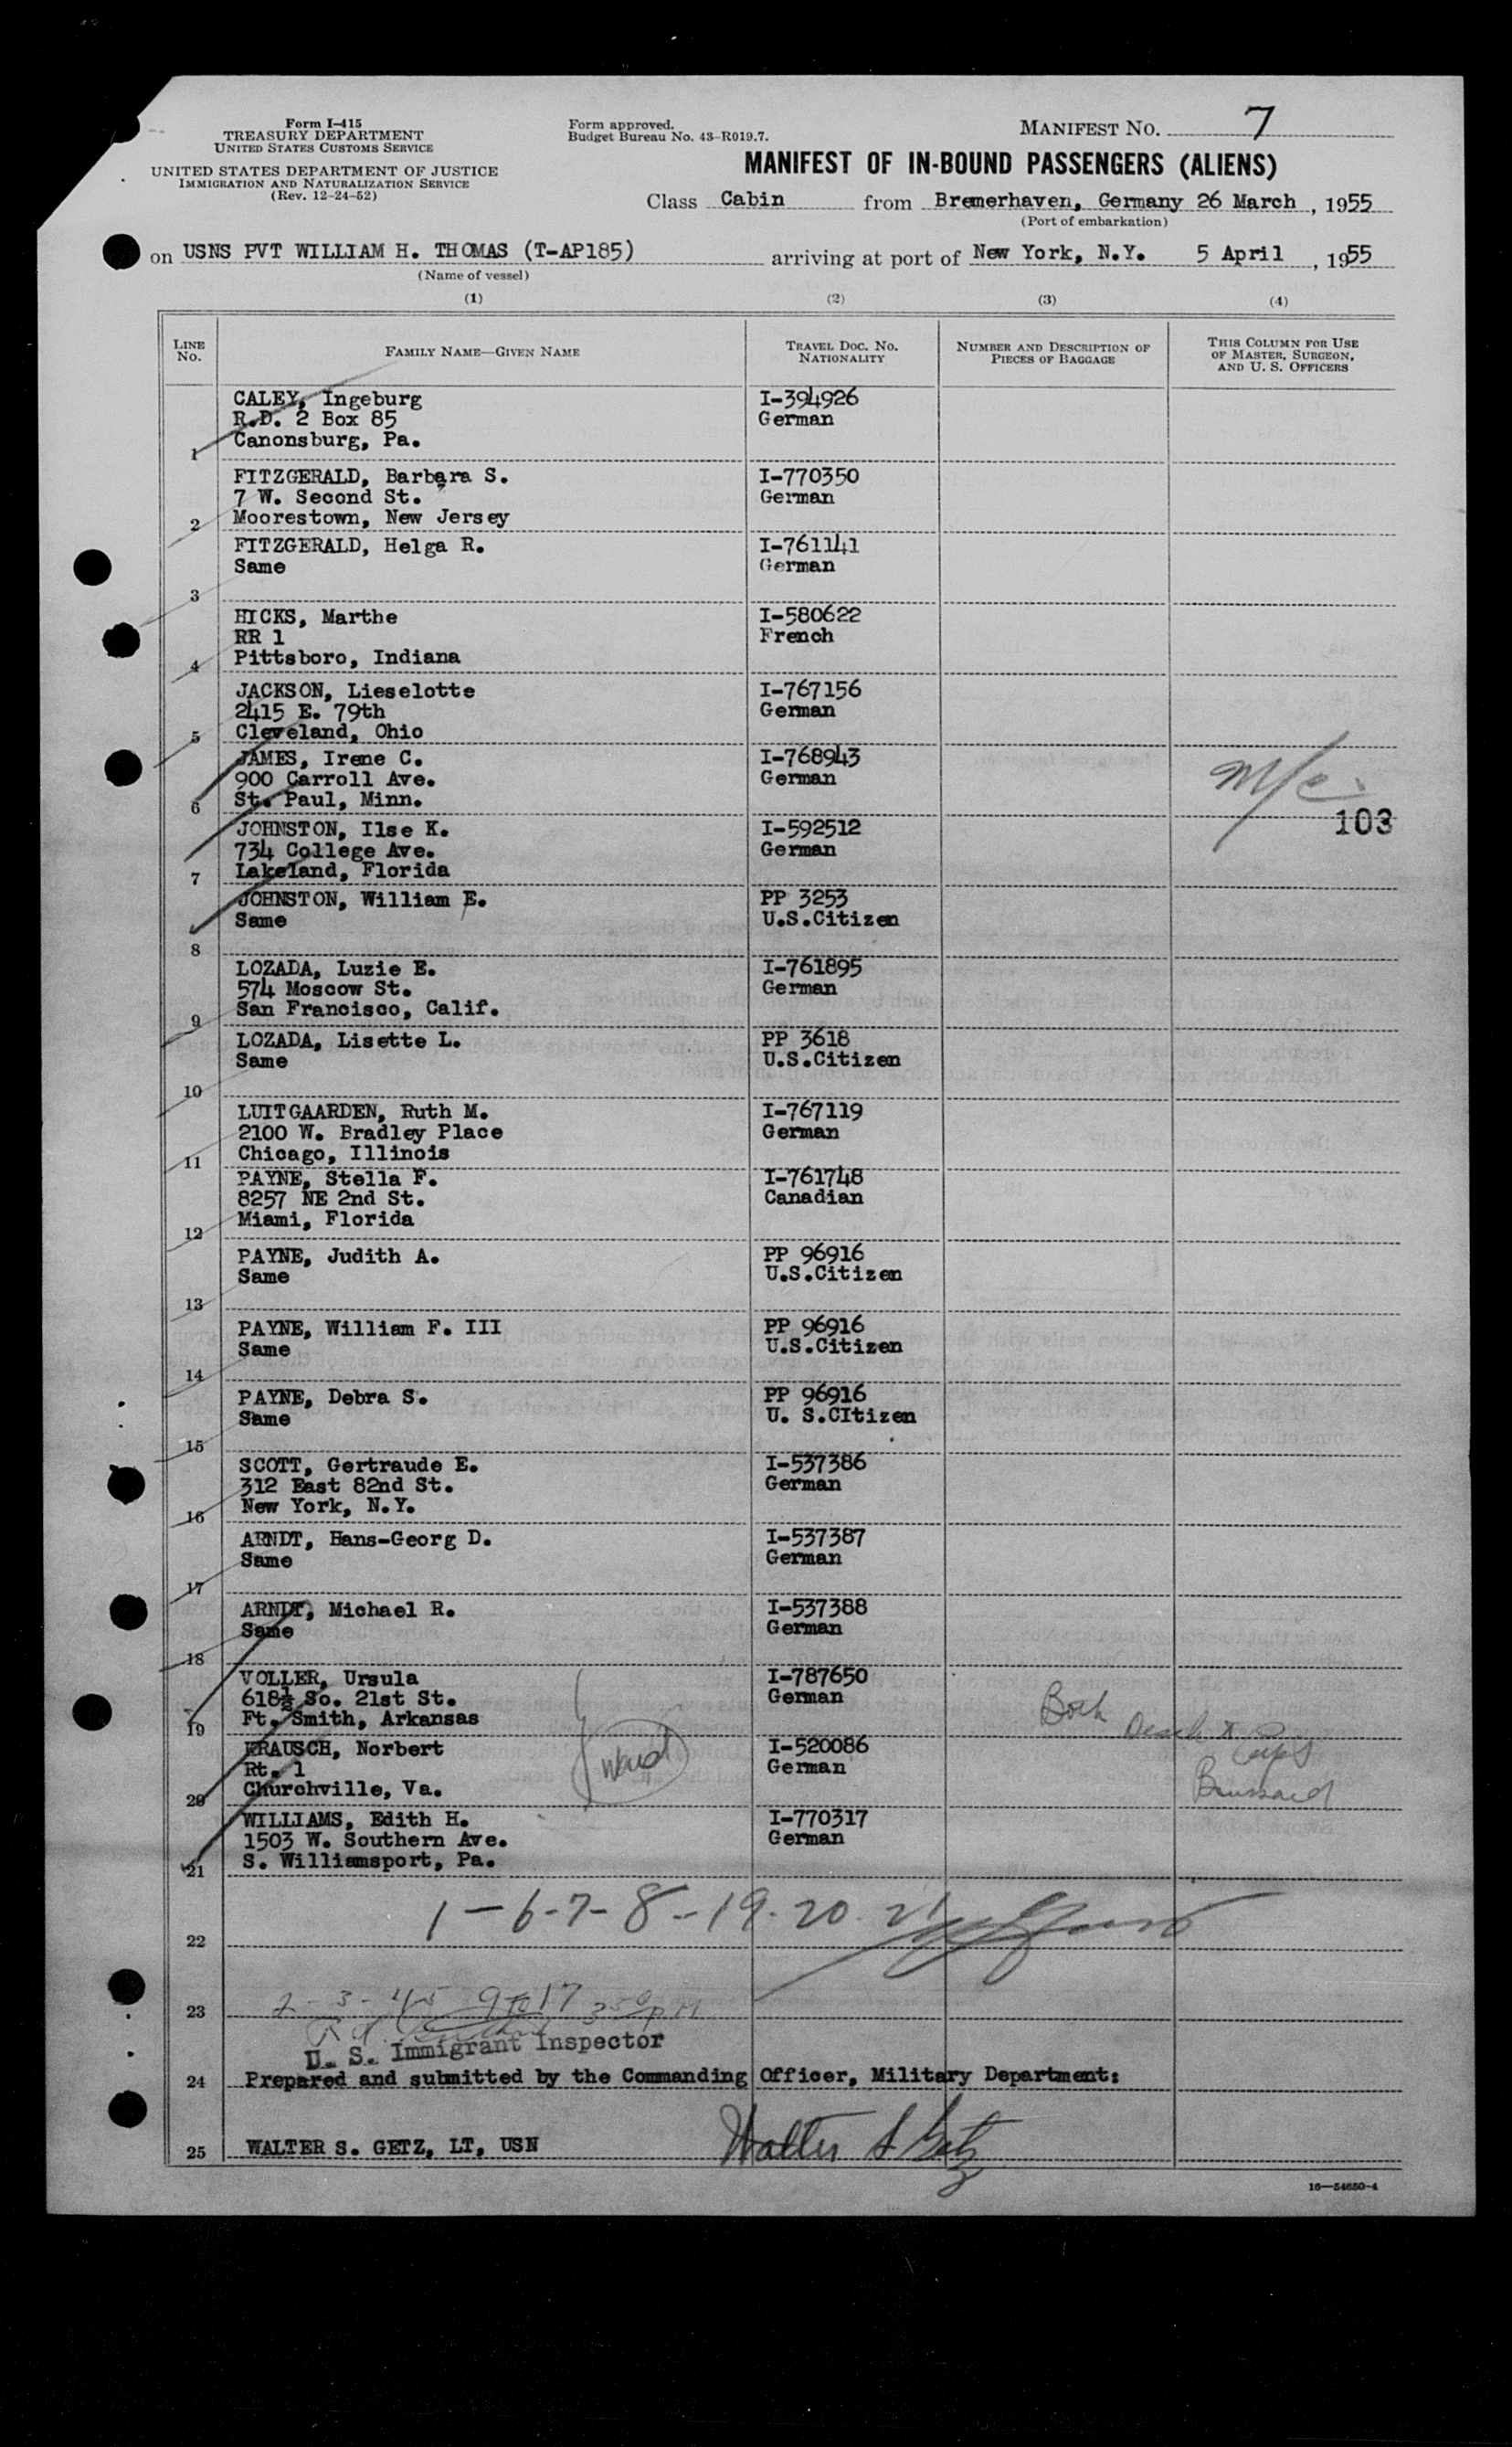 Form I-415
TREASURY DEPARTMENT
UNITED STATES CUSTOMS SERVICE
UNITED STATES DEPARTMENT OF JUSTICE
IMMIGRATION AND NATURALIZATION SERVICE
(Rev. 12-24-52)
Form approved.
Budget Bureau No. 43-R019.7.
MANIFEST NO. 7
MANIFEST OF IN-BOUND PASSENGERS (ALIENS)
Class Cabin from Bremerhaven, Germany 26 March, 1955
(Port of embarkation)
on USNS PVT WILLIAM H. THOMAS (T-AP185) arriving at port of New York, N.Y. 5 April, 1955
(Name of vessel)
(1) (2) (3) (4)
LINE No. FAMILY NAME—GIVEN NAME TRAVEL DOC. NO. NATIONALITY NUMBER AND DESCRIPTION OF PIECES OF BAGGAGE THIS COLUMN FOR USE OF MASTER, SURGEON, AND U. S. OFFICERS
CALEY, Ingeburg I-394926
R.D. 2 Box 85 German
1 Canonsburg, Pa.
FITZGERALD, Barbara S. I-770350
7 W. Second St. German
2 Moorestown, New Jersey
FITZGERALD, Helga R. I-761141
Same German
3
HICKS, Marthe I-580622
RR 1 French
4 Pittsboro, Indiana
JACKSON, Lieselotte I-767156
2415 E. 79th German
5 Cleveland, Ohio
JAMES, Irene C. I-768943
900 Carroll Ave. German
6 St. Paul, Minn.
M/c
103
JOHNSTON, Ilse K. I-592512
734 College Ave. German
7 Lakeland, Florida
JOHNSTON, William E. PP 3253
Same U.S.Citizen
8
LOZADA, Luzie E. I-761895
574 Moscow St. German
9 San Francisco, Calif.
LOZADA, Lisette L. PP 3618
Same U.S.Citizen
10
LUITGAARDEN, Ruth M. I-767119
2100 W. Bradley Place German
11 Chicago, Illinois
PAYNE, Stella F. I-761748
8257 NE 2nd St. Canadian
12 Miami, Florida
PAYNE, Judith A. PP 96916
Same U.S.Citizen
13
PAYNE, William F. III PP 96916
Same U.S.Citizen
14
PAYNE, Debra S. PP 96916
Same U. S.CItizen
15
SCOTT, Gertraude E. I-537386
312 East 82nd St. German
16 New York, N.Y.
ARNDT, Hans-Georg D. I-537387
Same German
17
ARNDT, Michael R. I-537388
Same German
18
VOLLER, Ursula I-787650
618½ So. 21st St. German
19 Ft. Smith, Arkansas
Both
KRAUSCH, Norbert I-520086
Rt. 1 German
20 Churchville, Va.
WILLIAMS, Edith H. I-770317
1503 W. Southern Ave. German
21 S. Williamsport, Pa.
1-6-7-8-19-20-21
22
23 2-3-4-5 9 to 17
U. S. Immigrant Inspector
24 Prepared and submitted by the Commanding Officer, Military Department:
25 WALTER S. GETZ, LT, USN Walter S Getz
16—54650-4